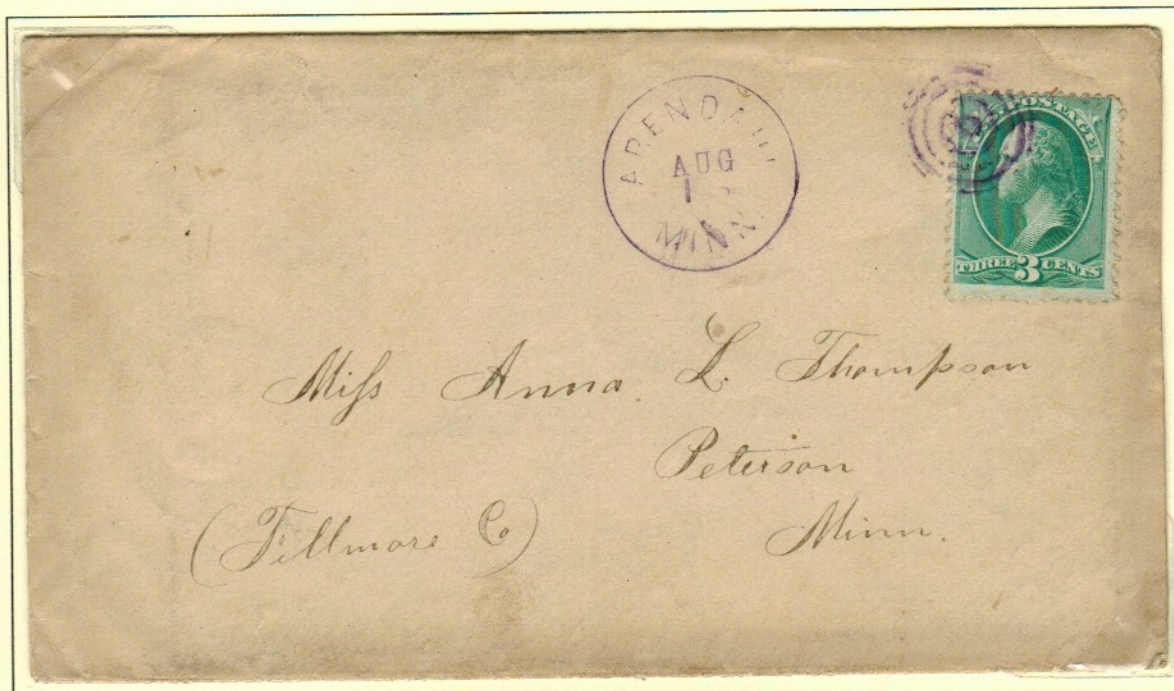 ARENDAHL
AUG
MINN.
POSTAGE
THREE 3 CENTS
Miss Anna L. Thompson
Peterson
(Fillmore Co) Minn.